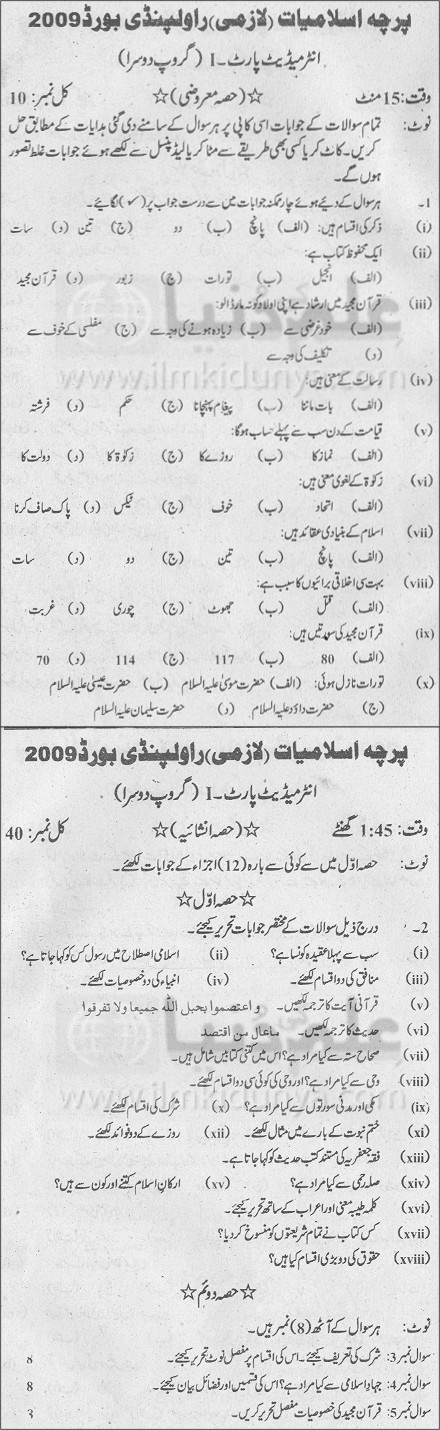 پرچہ اسلامیات (لازمی) راولپنڈی بورڈ 2009
انٹرمیڈیٹ پارٹ - I (گروپ دوسرا)
وقت: 15 منٹ ☆(حصہ معروضی)☆ کل نمبر: 10
نوٹ: تمام سوالات کے جوابات اسی کاپی پر ہر سوال کے سامنے دی گئی ہدایات کے مطابق حل
کریں۔ کاٹ کر یا کسی بھی طریقے سے مٹا کر یا لیڈ پنسل سے لکھے ہوئے جوابات غلط تصور
ہوں گے۔
1- ہر سوال کے دیئے ہوئے چار ممکنہ جوابات میں سے درست جواب پر (✓) لگائیے۔
(i) ذکر کی اقسام ہیں: (الف) پانچ (ب) دو (ج) تین (د) سات
(ii) ایک محفوظ کتاب ہے:
(الف) انجیل (ب) تورات (ج) زبور (د) قرآن مجید
(iii) قرآن مجید میں ارشاد ہے اپنی اولاد کو نہ مار ڈالو:
(الف) خود غرضی سے (ب) زیادہ ہونے کی وجہ سے (ج) مفلسی کے خوف سے
(د) تکلیف کی وجہ سے
(iv) رسالت کے معنی ہیں:
(الف) بات ماننا (ب) پیغام پہنچانا (ج) حکم (د) فرشتہ
(v) قیامت کے دن سب سے پہلے حساب ہوگا:
(الف) نماز کا (ب) روزے کا (ج) زکوٰۃ کا (د) دولت کا
(vi) زکوٰۃ کے لغوی معنی ہیں:
(الف) اتحاد (ب) خوف (ج) ٹیکس (د) پاک صاف کرنا
(vii) اسلام کے بنیادی عقائد ہیں:
(الف) پانچ (ب) تین (ج) دو (د) سات
(viii) بہت سی اخلاقی برائیوں کا سبب ہے:
(الف) قتل (ب) جھوٹ (ج) چوری (د) غربت
(ix) قرآن مجید کی سورتیں ہیں:
(الف) 80 (ب) 117 (ج) 114 (د) 70
(x) تورات نازل ہوئی: (الف) حضرت موسیٰ علیہ السلام (ب) حضرت عیسیٰ علیہ السلام
(ج) حضرت داؤد علیہ السلام (د) حضرت سلیمان علیہ السلام
پرچہ اسلامیات (لازمی) راولپنڈی بورڈ 2009
انٹرمیڈیٹ پارٹ - I (گروپ دوسرا)
وقت: 1:45 گھنٹے ☆(حصہ انشائیہ)☆ کل نمبر: 40
نوٹ: حصہ اوّل میں سے کوئی سے بارہ (12) اجزاء کے جوابات لکھئے۔
☆حصہ اوّل☆
2- درج ذیل سوالات کے مختصر جوابات تحریر کیجئے۔
(i) سب سے پہلا عقیدہ کونسا ہے؟ (ii) اسلامی اصطلاح میں رسول کس کو کہا جاتا ہے؟
(iii) منافق کی دو اقسام لکھئے۔ (iv) انبیاء کی دو خصوصیات لکھئے۔
(v) قرآنی آیت کا ترجمہ لکھیں۔ واعتصموا بحبل الله جميعا ولا تفرقوا
(vi) حدیث کا ترجمہ لکھیں۔ ماعال من اقتصد
(vii) صحاح ستہ سے کیا مراد ہے؟ اس میں کتنی کتابیں شامل ہیں۔
(viii) وحی سے کیا مراد ہے؟ اور وحی کی کوئی سی دو اقسام لکھئے۔
(ix) مکی اور مدنی سورتوں سے کیا مراد ہے؟ (x) شرک کی اقسام لکھئے۔
(xi) ختم نبوت کے بارے میں مثال لکھئے۔ (xii) روزے کے دو فوائد لکھئے۔
(xiii) فقہ جعفریہ کی مستند کتب حدیث کو کیا کہا جاتا ہے۔
(xiv) صلہ رحمی سے کیا مراد ہے؟ (xv) ارکانِ اسلام کتنے اور کون سے ہیں؟
(xvi) کلمہ طیبہ معنی اور اعراب کے ساتھ تحریر کیجئے۔
(xvii) کس کتاب نے تمام شریعتوں کو منسوخ کر دیا؟
(xviii) حقوق کی دو بڑی اقسام کیا ہیں؟
☆حصہ دوئم☆
نوٹ: ہر سوال کے آٹھ (8) نمبر ہیں۔
سوال نمبر 3: شرک کی تعریف کیجئے۔ اس کی اقسام پر مفصل نوٹ تحریر کیجئے۔ 8
سوال نمبر 4: جہاد اسلامی سے کیا مراد ہے؟ اس کی قسمیں اور فضائل بیان کیجئے۔ 8
سوال نمبر 5: قرآن مجید کی خصوصیات مفصل تحریر کریں۔ 8
علم کی دنیا
www.ilmkidunya.com